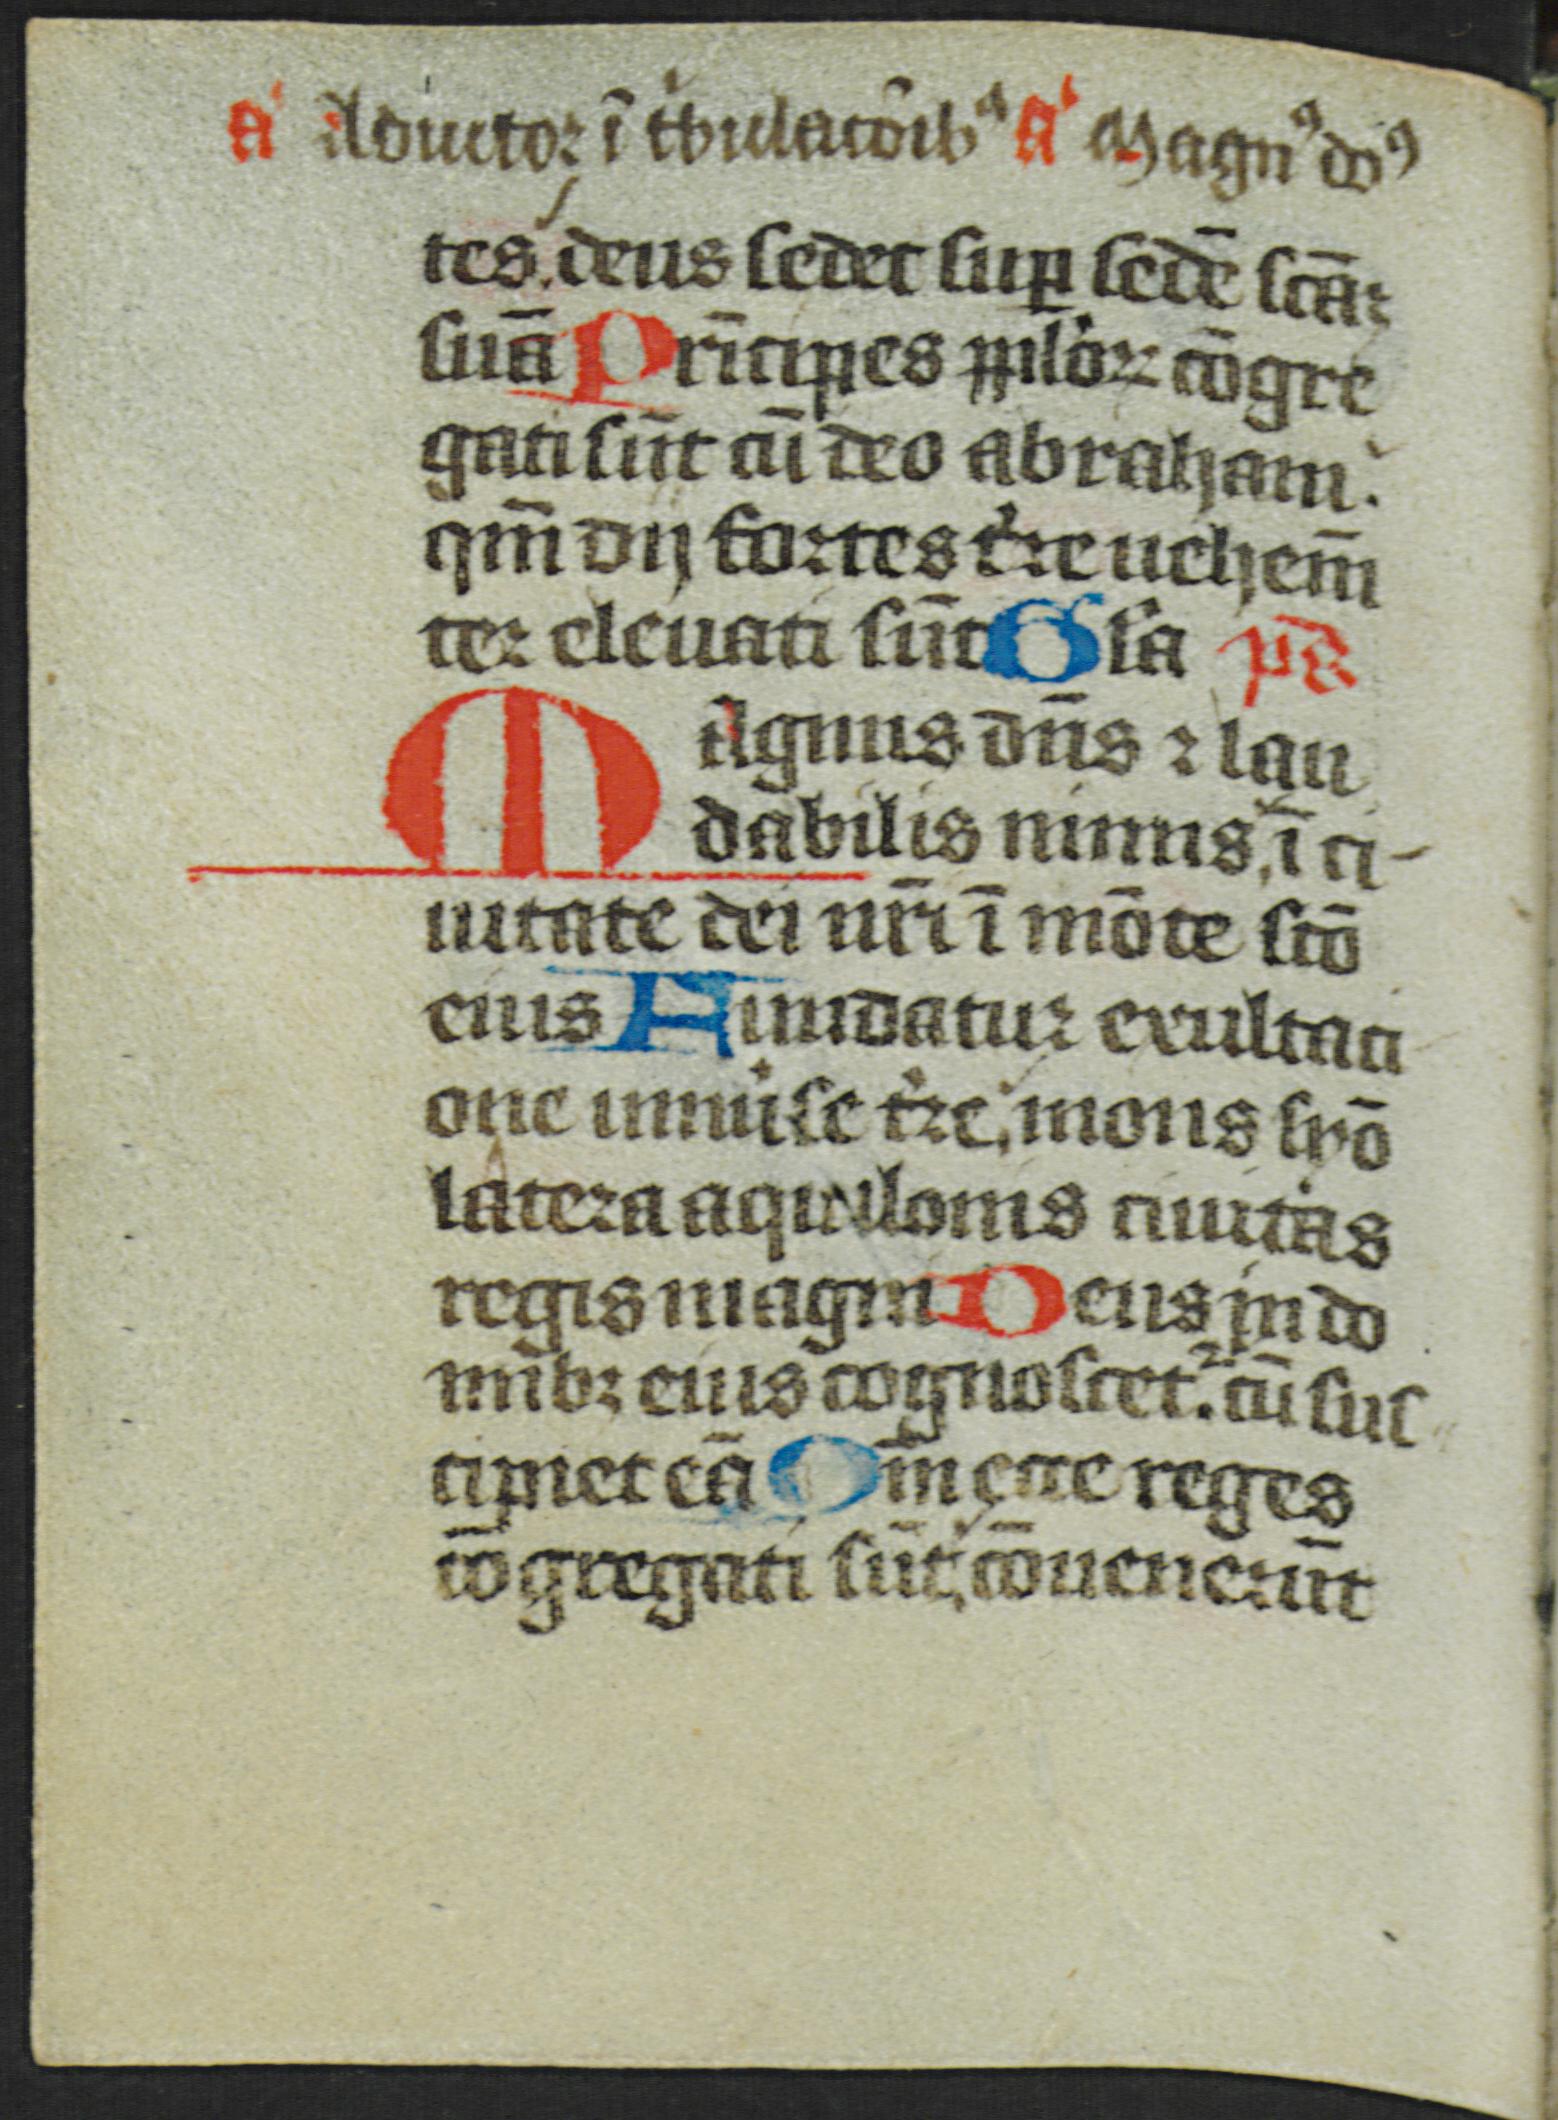 a Adiutoꝛ ī tͥbulatōıbꝰ a Magnꝰ doꝰ
tes. deus sedet suꝑ sedē scā⁊
suā Prīcipes ppĺoꝝ cōgre
gati sūt cū deo abraham.
qm̄ dij foꝛtes tꝛ̄e uehem̄
teꝛ eleuati sūt Gl̓a ps̄
Magnus dn̄s ⁊ lau
dabilis nimis, ī ci-
uitate dei nr̄i ī mōte scō
eius Fundatuꝛ exultaci
one uniu̓se tꝛ̄e, mons syō
lateꝛa aquilonis ciuitas
regis magni Deus in do
mīb⁊ eius cognoscet᷑. cū sus
cipiet eā Qm̄ ecce reges
cōgregati sūt, cōueneꝛūt